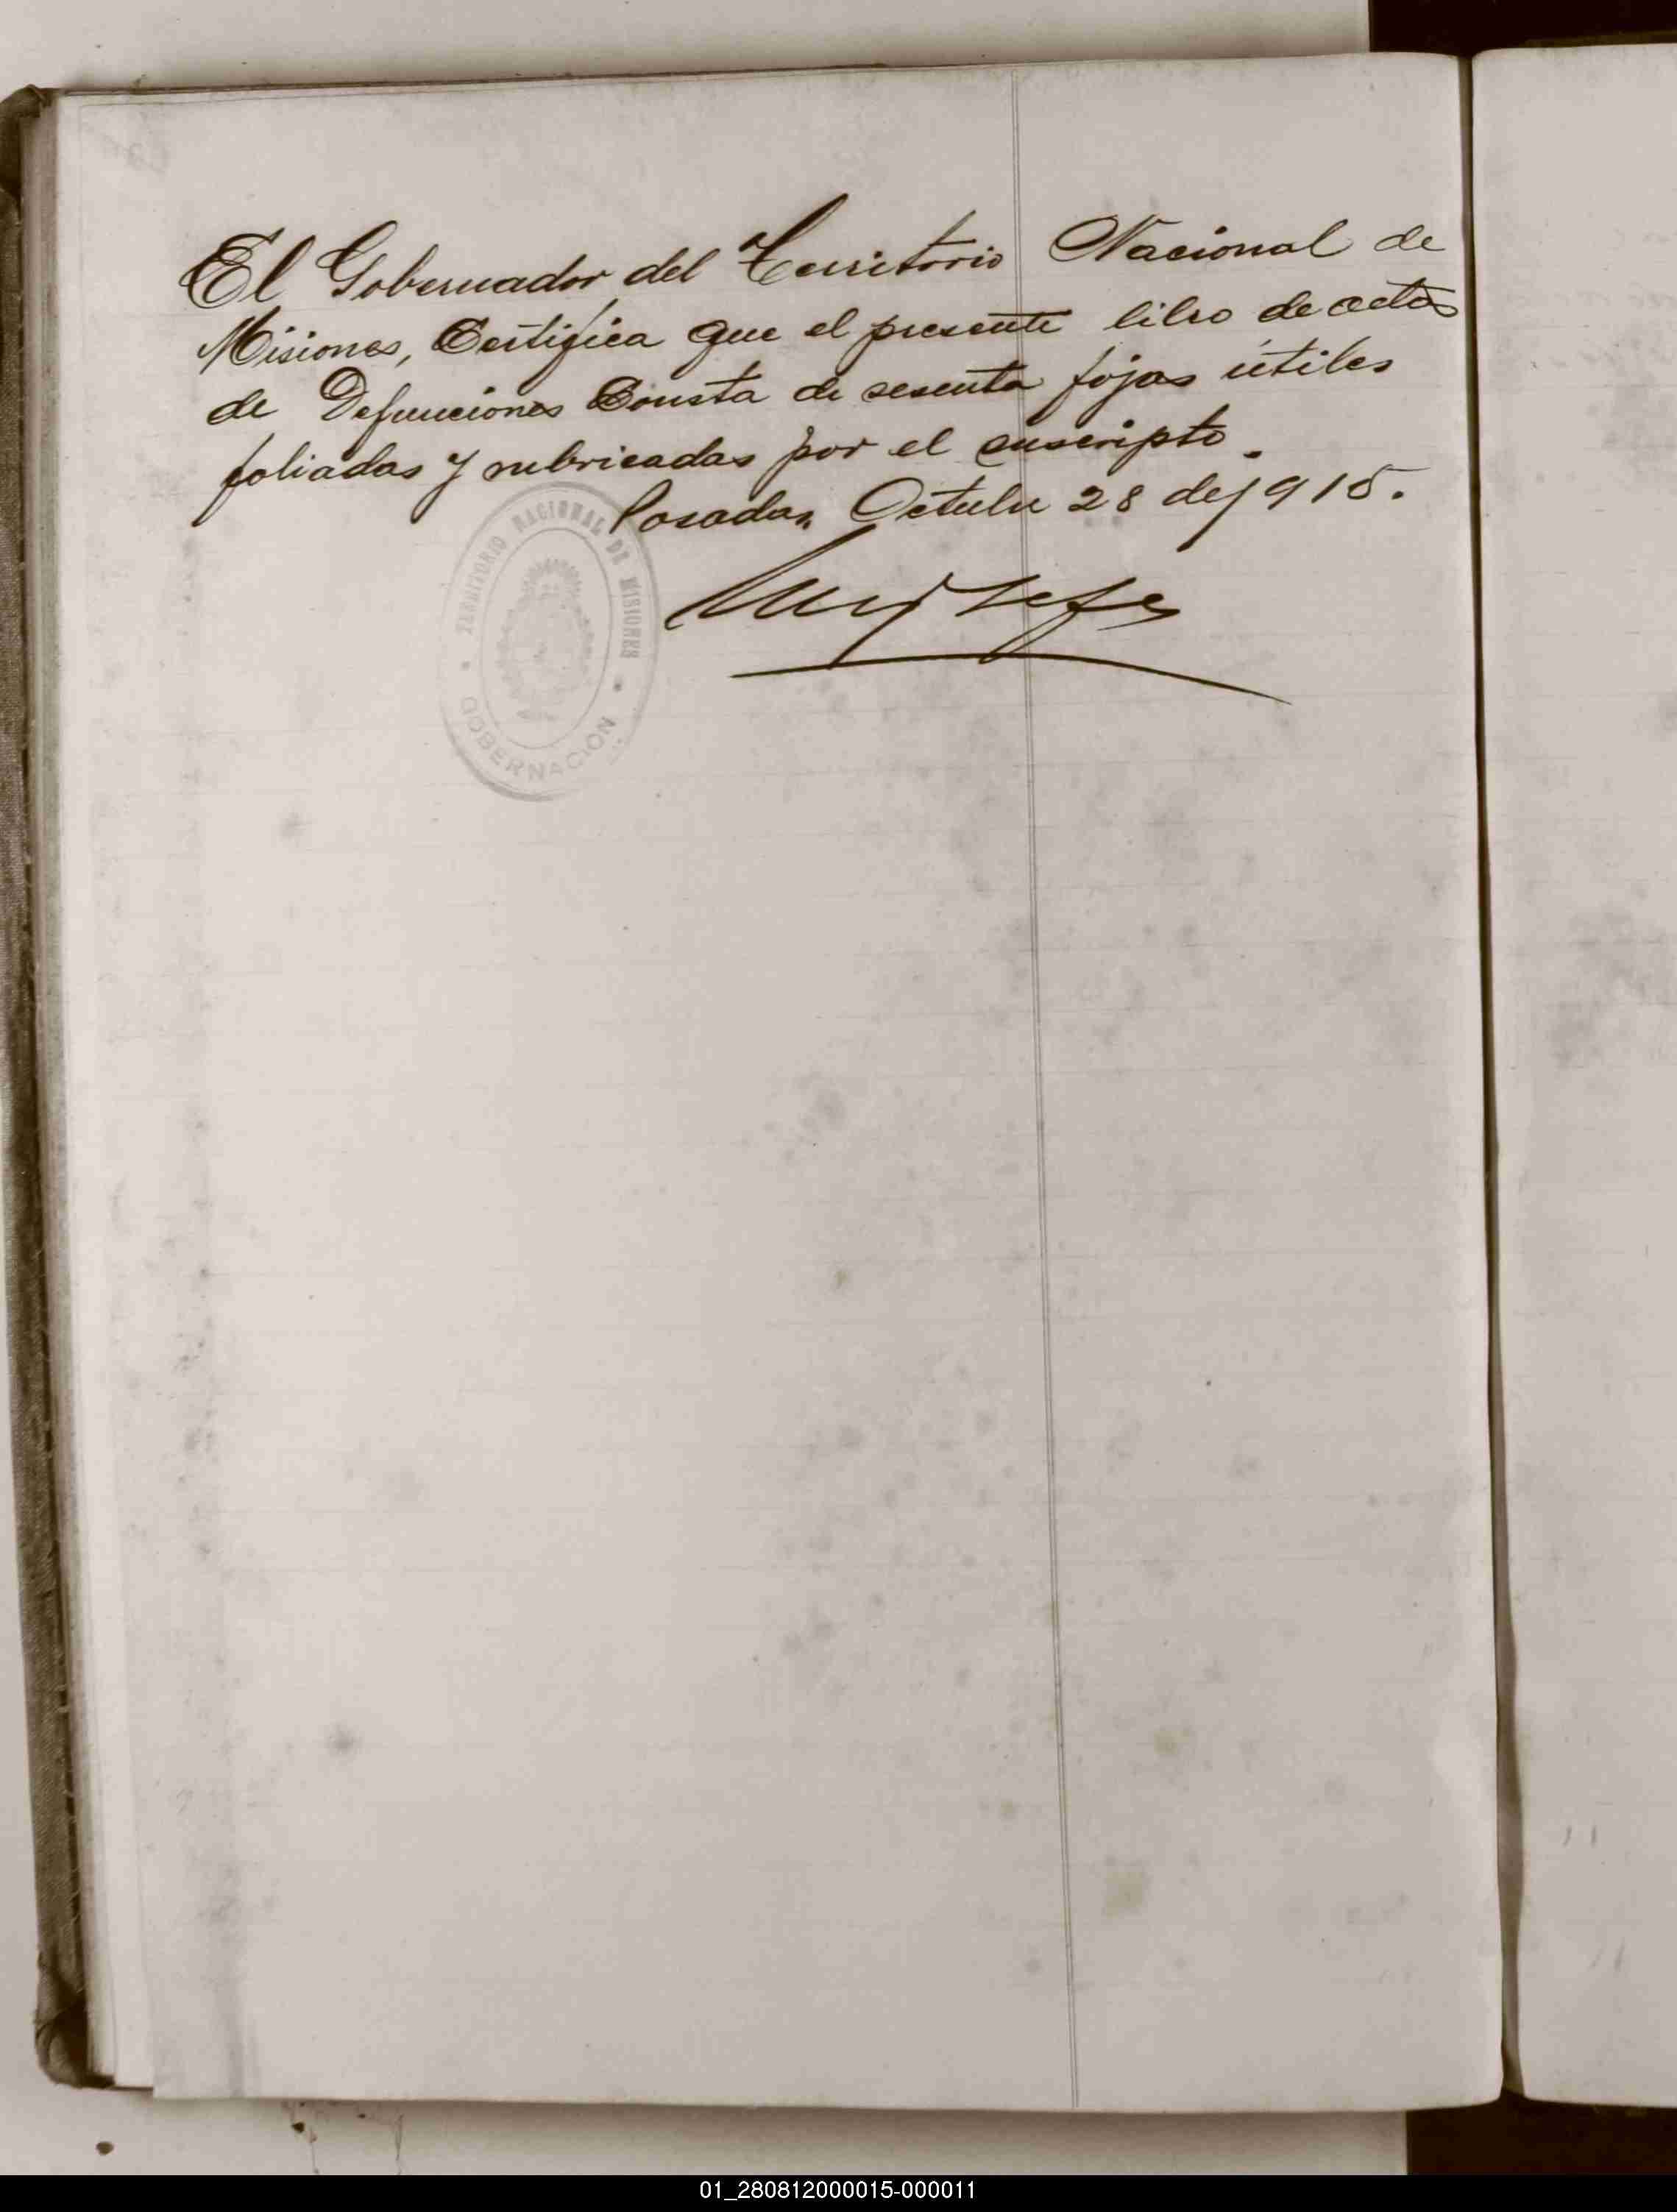 El Gobernador del Territorio Nacional de
Misiones, Certifica que el presente libro de actas
de Defunciones Consta de sesenta fojas útiles
foliadas y rubricadas por el suscripto.
Posadas, Octubre 28 de 1915.
TERRITORIO NACIONAL DE MISIONES
GOBERNACION
01_280812000015-000011